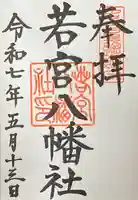 奉拝
若宮八幡社
令和七年五月十三日